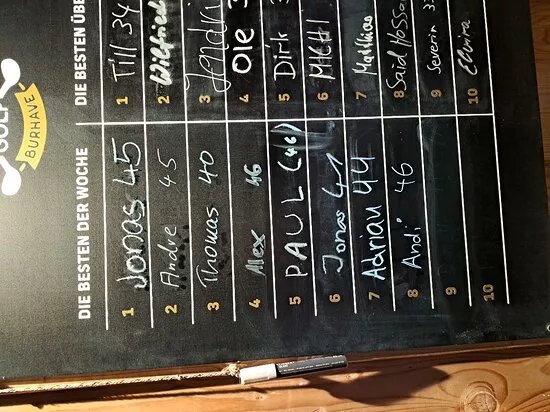 GOLF
BURHAVE
DIE BESTEN DER WOCHE
1 Jonas 45
2 Andre 45
3 Thomas 40
4 Alex 46
5 PAUL (46)
6 Jonas 41
7 Adrian 44
8 Andi 46
9
10
DIE BESTEN ÜBE
1 Till 34
2 Wilfried
3 Jendri
4 Ole 3
5 Dirk 3
6 MICHI
7 Matthias
8 Said Hossa
9 Severin 3
10 Elvira